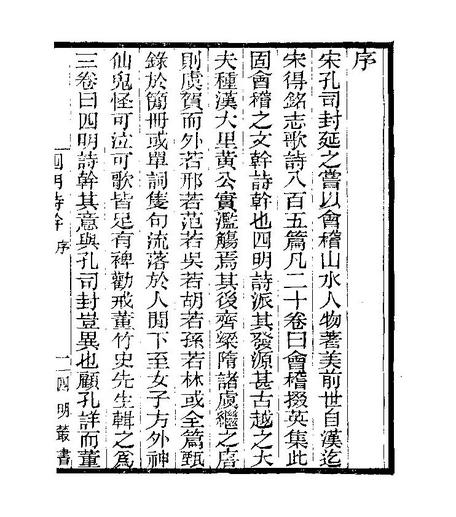 序
宋孔司封延之嘗以會稽山水人物著美前世自漢迄
宋得銘志歌詩八百五篇凡二十卷曰會稽掇英集此
固會稽之文幹詩幹也四明詩派其發源甚古越之大
夫種漢大里黃公實濫觴焉其後齊梁隋諸虞繼之唐
則虞賀而外若邢若范若吳若胡若孫若林或全篇甄
錄於簡冊或單詞隻句流落於人閒下至女子方外神
仙鬼怪可泣可歌皆足有裨勸戒董竹史先生輯之爲
三卷曰四明詩幹其意與孔司封豈異也顧孔詳而董
四明詩幹 序
一 四明叢書